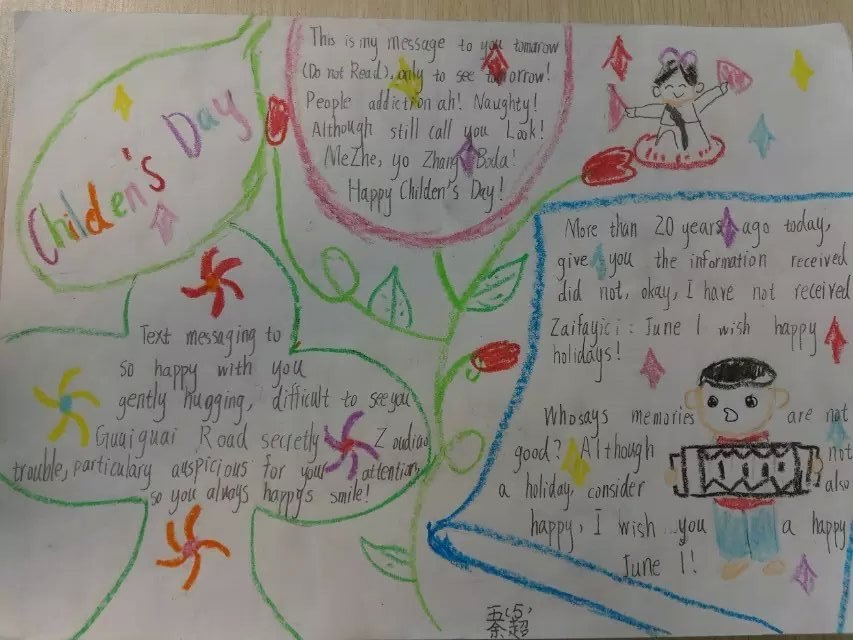 Childen's Day
This is my message to you tomarow
(Do not Read), only to see tomorrow!
People addiction ah! Naughty!
Although still call you Look!
MeZhe, yo Zhang Boda!
Happy Childen's Day!
Text messaging to
so happy with you
gently hugging, difficult to see you
Guaiguai Road secretly Zoudiao
trouble, particulary auspicious for your attention
so you always happy's smile!
More than 20 years ago today,
give you the information received
did not, okay, I have not received
Zaifayici: June 1 wish happy
holidays!
Whosays memories are not
good? Although not
a holiday, consider also
happy, I wish you a happy
June 1!
五(5)
秦超